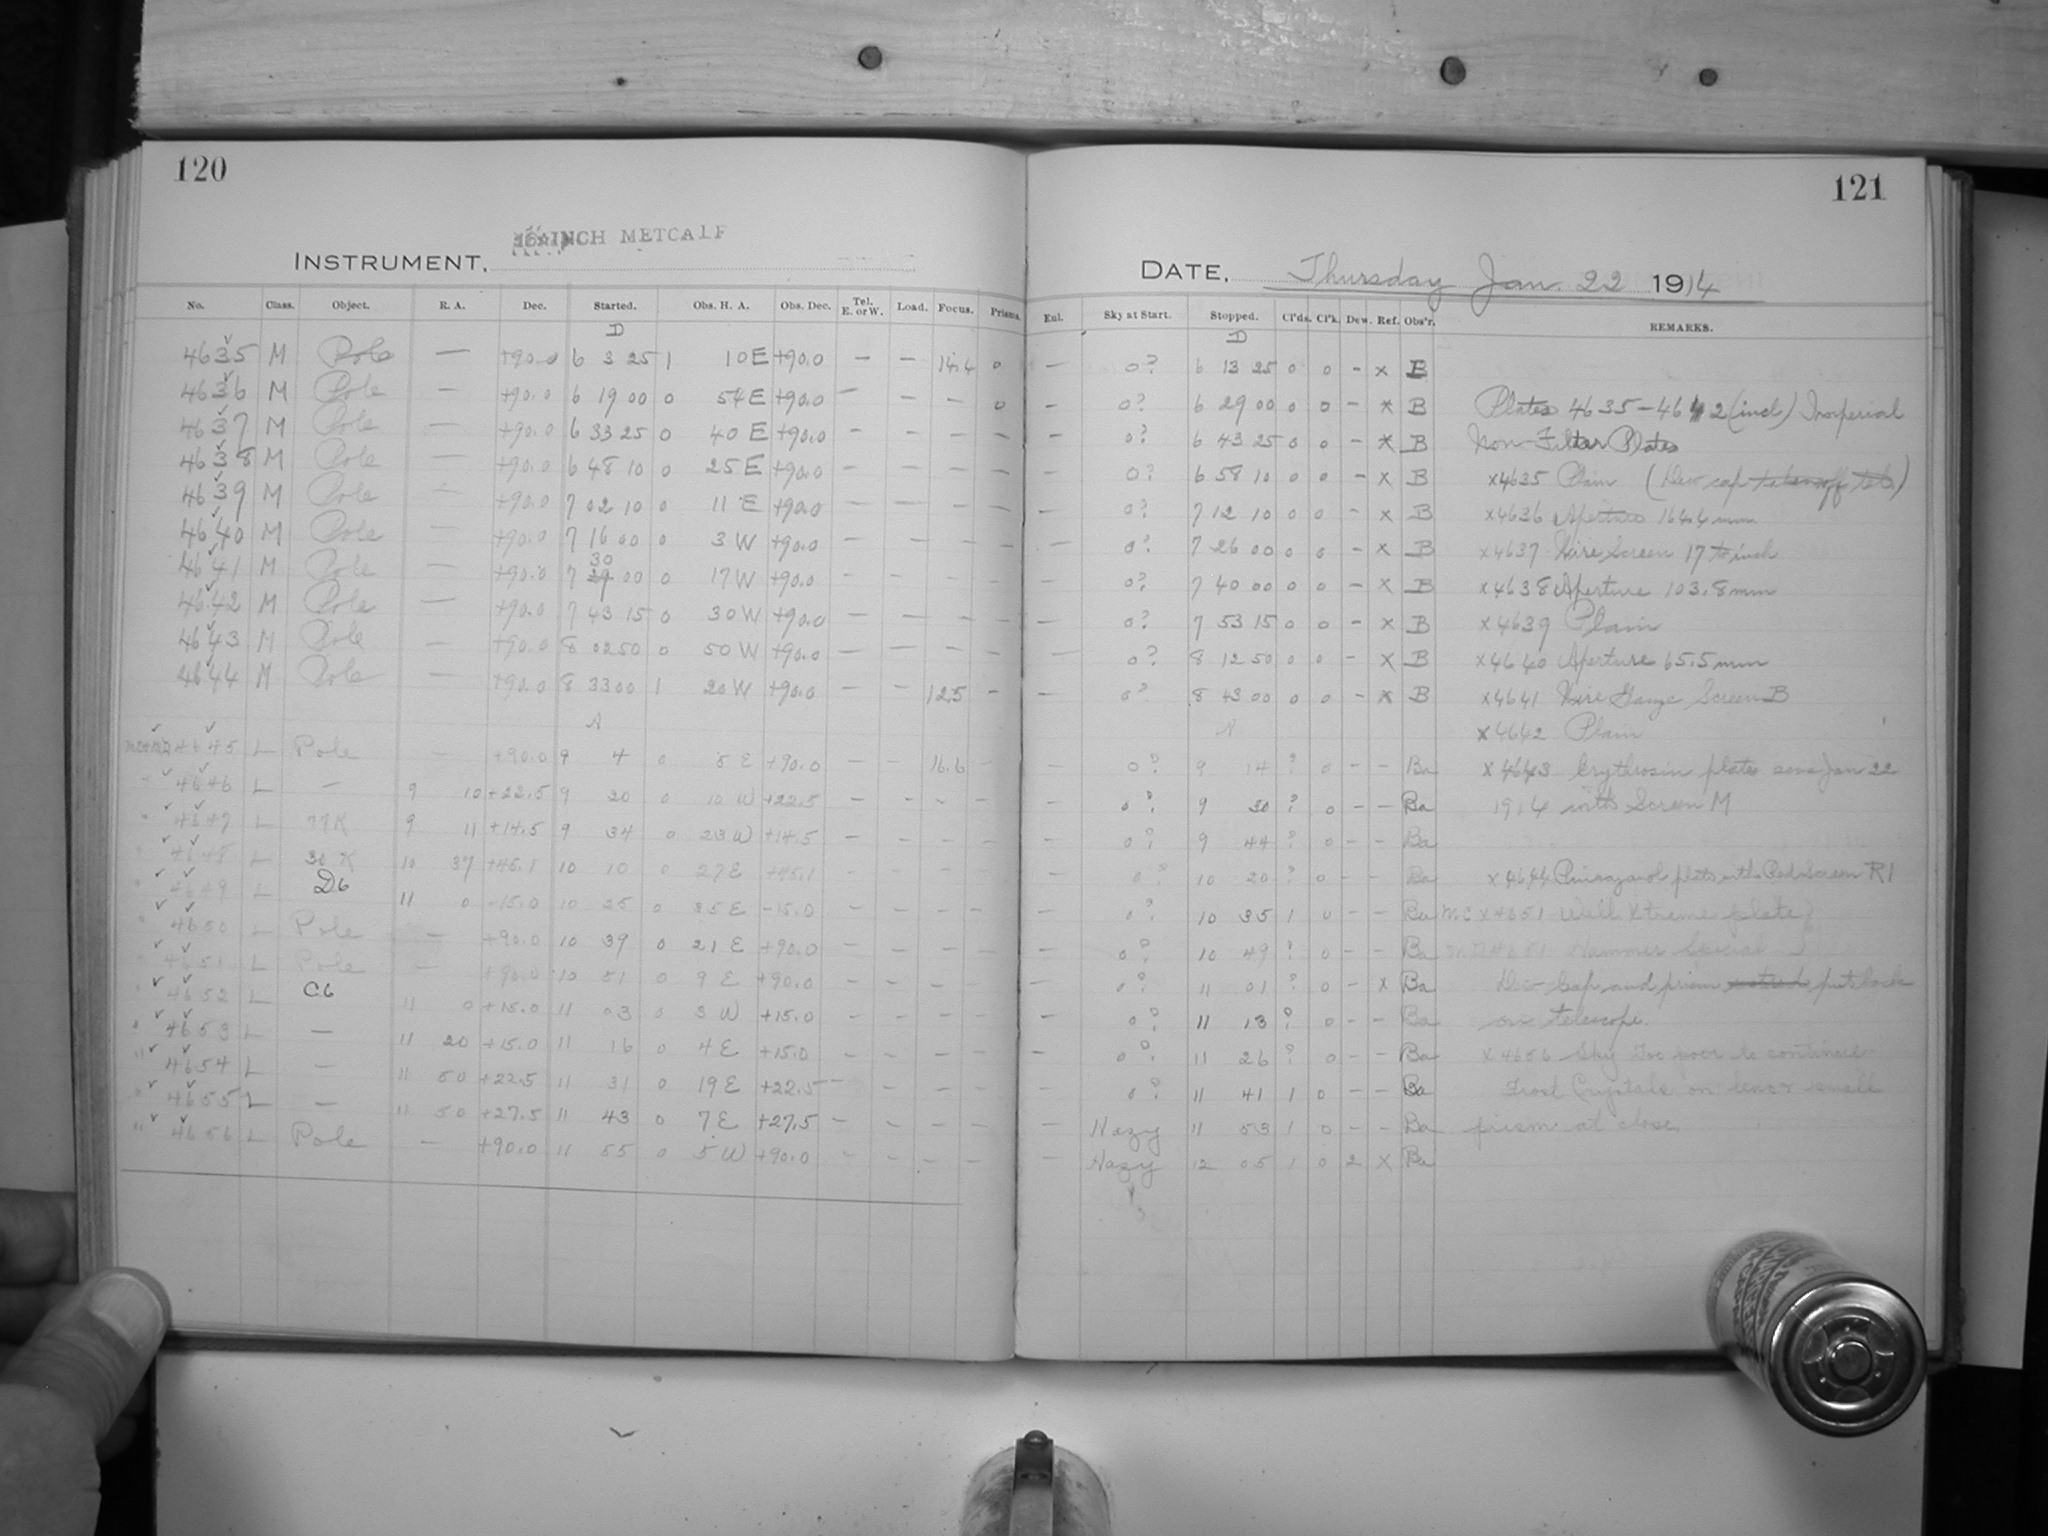 120
INCH METCALF
INSTRUMENT,
No. Class. Object. R. A. Dec. Started. Obs. H. A. Obs. Dec. Tel. E. or W. Load. Focus. Prisms.
D
4635 M Pole — +90.0 6 3 25 1 10 E +90.0 — — 14.4 0
4636 M Pole — +90.0 6 19 00 0 54 E +90.0 — — — 0
4637 M Pole — +90.0 6 33 25 0 40 E +90.0 — — — —
4638 M Pole — +90.0 6 48 10 0 25 E +90.0 — — — —
4639 M Pole — +90.0 7 02 10 0 11 E +90.0 — — — —
4640 M Pole — +90.0 7 16 00 0 3 W +90.0 — — — —
4641 M Pole — +90.0 7 30 00 0 17 W +90.0 — — — —
4642 M Pole — +90.0 7 43 15 0 30 W +90.0 — — — —
4643 M Pole — +90.0 8 02 50 0 50 W +90.0 — — — —
4644 M Pole — +90.0 8 33 00 1 20 W +90.0 — — 12.5 —
A
4645 L Pole — +90.0 9 4 0 8 E +90.0 — — 16.6 —
" 4646 L — 9 10 +22.5 9 20 0 10 W +22.5 — — — —
" 4647 L 77K 9 11 +14.5 9 34 0 23 W +14.5 — — — —
" 4648 L 30 K 10 37 +45.1 10 10 0 27 E +45.1 — — — —
" 4649 L D6 11 0 -15.0 10 25 0 35 E -15.0 — — — —
" 4650 L Pole — +90.0 10 39 0 21 E +90.0 — — — —
" 4651 L Pole — +90.0 10 51 0 9 E +90.0 — — — —
" 4652 L C6 11 0 +15.0 11 03 0 3 W +15.0 — — — —
" 4653 L — 11 20 +15.0 11 16 0 4 E +15.0 — — — —
" 4654 L — 11 50 +22.5 11 31 0 19 E +22.5 — — — —
" 4655 L — 11 50 +27.5 11 43 0 7 E +27.5 — — — —
" 4656 L Pole — +90.0 11 55 0 5 W +90.0 — — — —
121
DATE, Thursday Jan. 22 1914
Eul. Sky at Start. Stopped. Cl'ds. Cl'k. Dew. Ref. Obs'r. REMARKS.
D
— 0? 6 13 25 0 0 — x B
— 0? 6 29 00 0 0 — x B Plates 4635-4642 (incl) Imperial
— 0? 6 43 25 0 0 — x B Non-Filter Plates
— 0? 6 58 10 0 0 — x B x4635 Plain (Dew cap taken off tel.)
— 0? 7 12 10 0 0 — x B x4636 Aperture 164.4 mm
— 0? 7 26 00 0 0 — x B x4637 Wire Screen 17 to inch
— 0? 7 40 00 0 0 — x B x4638 Aperture 103.8 mm
— 0? 7 53 15 0 0 — x B x4639 Plain
— 0? 8 12 50 0 0 — x B x4640 Aperture 65.5 mm
— 0? 8 43 00 0 0 — x B x4641 Wire Gauze Screen B
A x4642 Plain
— 0? 9 14 ? 0 — — Ba x4643 Erythrosin plates Jan 22
— 0? 9 30 ? 0 — — Ba 1914 with Screen M
— 0? 9 44 ? 0 — — Ba
— 0? 10 20 ? 0 — — Ba x4644 plate with Red Screen R1
— 0? 10 35 1 0 — — Ba MC x4651 Well Xtreme plate
— 0? 10 49 ? 0 — — Ba 4651 Hammer Special
— 0? 11 01 ? 0 — x Ba Dew Cap and prism put back
— 0? 11 13 ? 0 — — Ba on telescope.
— 0? 11 26 ? 0 — — Ba x4656 Sky too poor to continue
— 0? 11 41 1 0 — — Ba Frost Crystals on lens & small
— Hazy 11 53 1 0 — — Ba prism at close.
— Hazy 12 05 1 0 2 x Ba